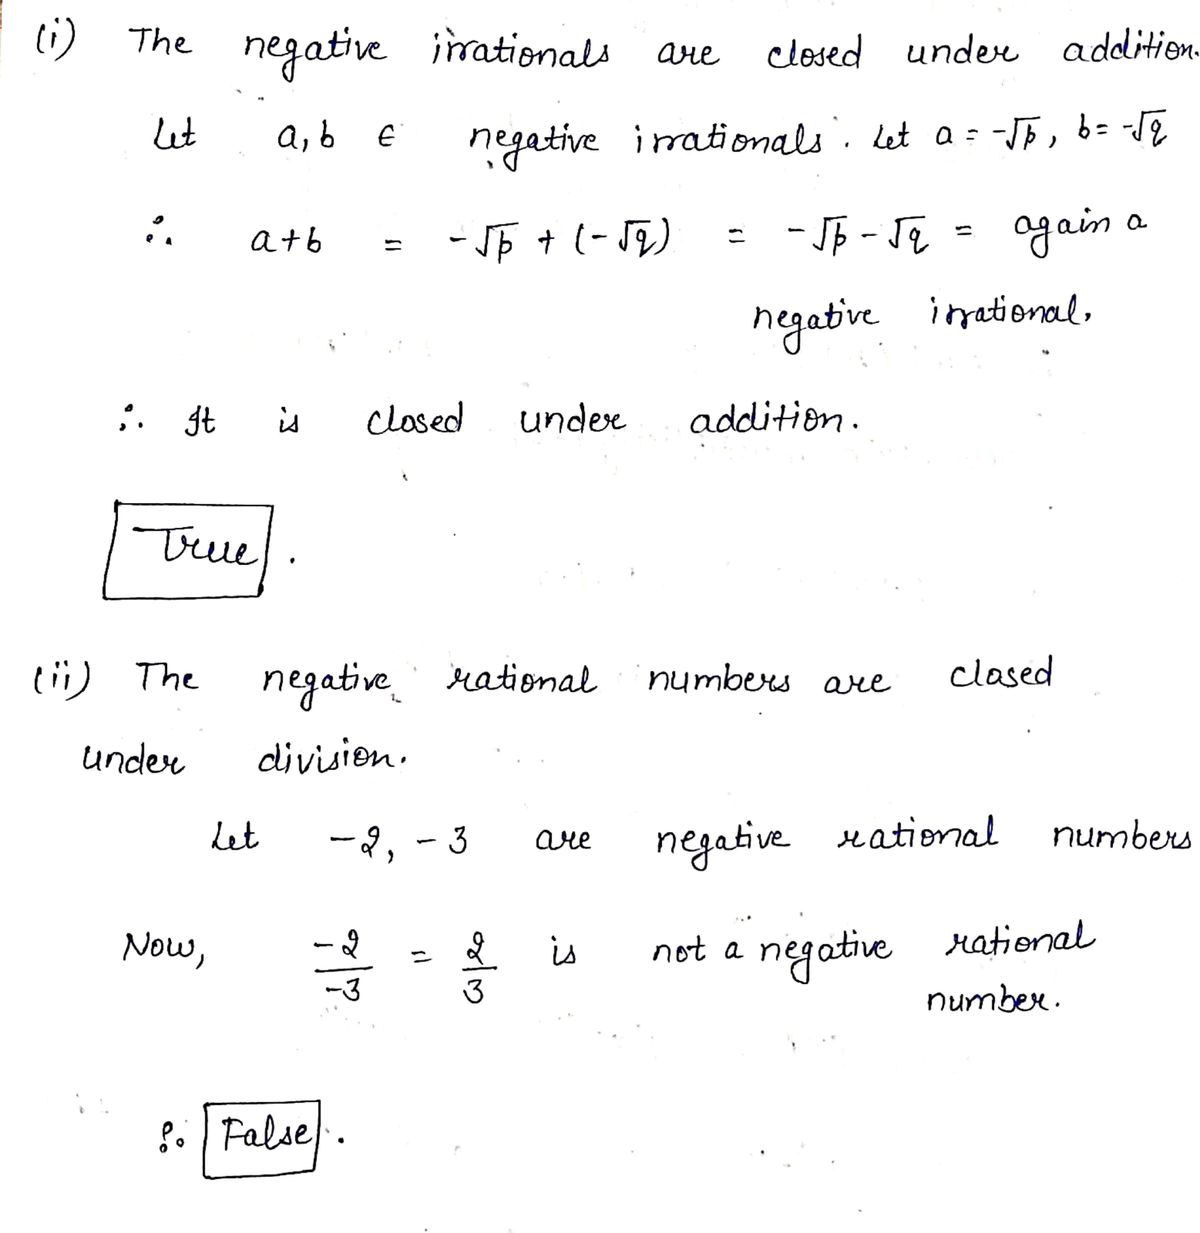 (i) The negative irrationals are closed under addition.
Let a, b ∈ negative irrationals. Let a = -√p, b = -√q
∴ a+b = -√p + (-√q) = -√p - √q = again a
negative irrational.
∴ It is closed under addition.
True.
(ii) The negative rational numbers are closed
under division.
Let -2, -3 are negative rational numbers
Now, -2/-3 = 2/3 is not a negative rational
number.
∴ False.